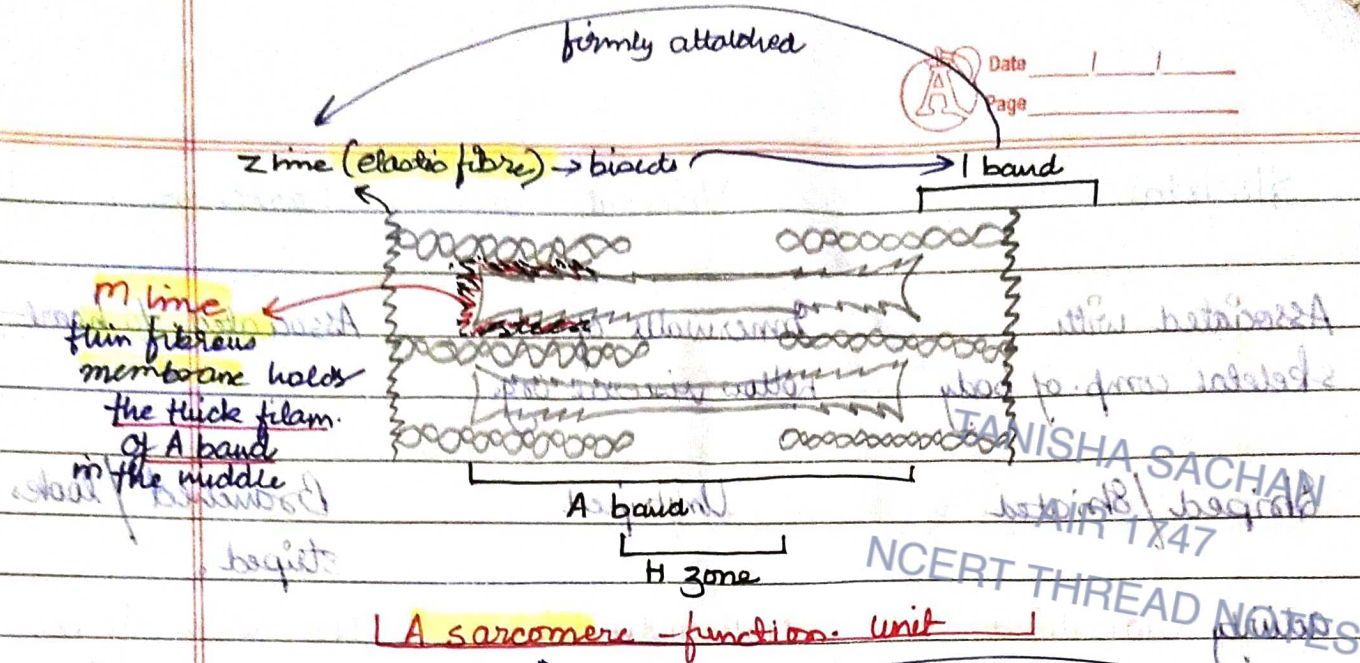 firmly attached
Date
Page
Z line (elastic fibre) → bisects → I band
M line
thin fibrous
membrane holds
the thick filam.
of A band
in the middle
A band
H zone
A sarcomere - function. unit
TANISHA SACHAN
AIR 1747
NCERT THREAD NOTES